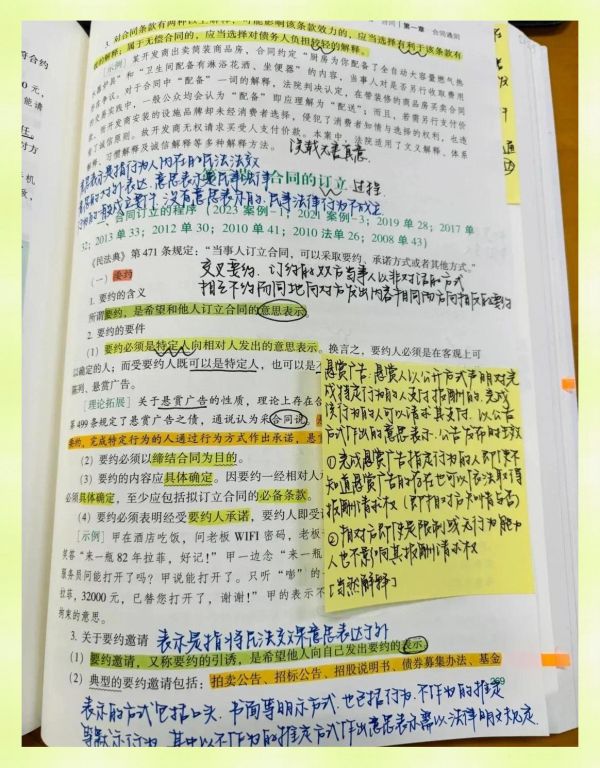 合同 | 第一章 合同通则
3. 对合同条款有两种以上解释,可能影响该条款效力的,应当选择有利于该条款有
的解释;属于无偿合同的,应当选择对债务人负担较轻的解释。
[示例] 某开发商出卖简装商品房,合同约定“厨房为你配备了全自动大容量燃气热
和“卫生间配备有淋浴花洒、坐便器”的内容,当事人对是否另行收取费用
存在争议。对于合同中“配备”一词的解释,法院判决认定,在带装修的商品房买卖合同
交易实践中,一般公众均会认为“配备”即应理解为“配送”;而且,若需另行支付价
款,而开发商安装的设施品牌却未经消费者选择,侵犯了消费者知情与选择的权利,也违
了诚信原则。故开发商无权请求买受人支付价款。本案中,法院适用了文义解释、体系
解释、习惯解释及诚信解释等多种解释方法。
意思表示是指行为人内有的民法法效
意思的对外表达.意思表示是民事法律
行为的有效成立要件.没有意思表示的.民事法律行为不成立
合同的订立 过程
一、合同订立的程序(2023 案例-1;2021 案例-3;2019 单 28;2017 单
32;2013 单 33;2012 单 30;2010 单 41;2010 法单 26;2008 单 43)
《民法典》第 471 条规定:“当事人订立合同,可以采取要约、承诺方式或者其他方式。”
(一) 要约
交叉要约.订约的双方当事人以非对话的方式
相互不约而同地向对方发出内容相同而方向相反的要约
1. 要约的含义
所谓要约,是希望和他人订立合同的意思表示。
2. 要约的要件
(1) 要约必须是特定人向相对人发出的意思表示。换言之,要约人必须是在客观上可
以确定的人;而受要约人既可以是特定人,也可以是不
陈列、悬赏广告。
[理论拓展] 关于悬赏广告的性质,理论上存在合
第 499 条规定了悬赏广告之债,通说认为采合同说,
要约,完成特定行为的人通过行为方式作出承诺,悬赏
(2) 要约必须以缔结合同为目的。
(3) 要约的内容应具体确定。因要约一经相对人承
必须具体确定,至少应包括拟订立合同的必备条款。
(4) 要约必须表明经受要约人承诺,要约人即受该
[示例] 甲在酒店吃饭,问老板 WIFI 密码,老板
笑答“来一瓶 82 年拉菲,好记!”甲一边念“来一瓶
服务员问能打开了吗?甲说能打开了。只听“嘭”的
拉菲,32000 元,已替您打开了,谢谢!”甲的表示不
拘束的意思。
悬赏广告:悬赏人以公开方式声明对完
成特定行为的人支付报酬的.完成
该行为的人可以请求其支付.以公告
方式作出的意思表示.公告发布时生效
①完成悬赏广告指定行为的人即便不
知道悬赏广告的存在也可以表法取得
报酬请求权(即相对方知情与否)
②相对方即便是限制或无行为能力
人也不影响其报酬请求权
[当然解释]
3. 关于要约邀请 表示是指将民法法效果意思表达于外
(1) 要约邀请,又称要约的引诱,是希望他人向自己发出要约的表示。
(2) 典型的要约邀请包括:拍卖公告、招标公告、招股说明书、债券募集办法、基金
269
表示的方式包括口头、书面等明示方式.也包括行为.不作为的推定
等默示行为.其中以不作为的推定方式作出意思表示需以法律明文规定.